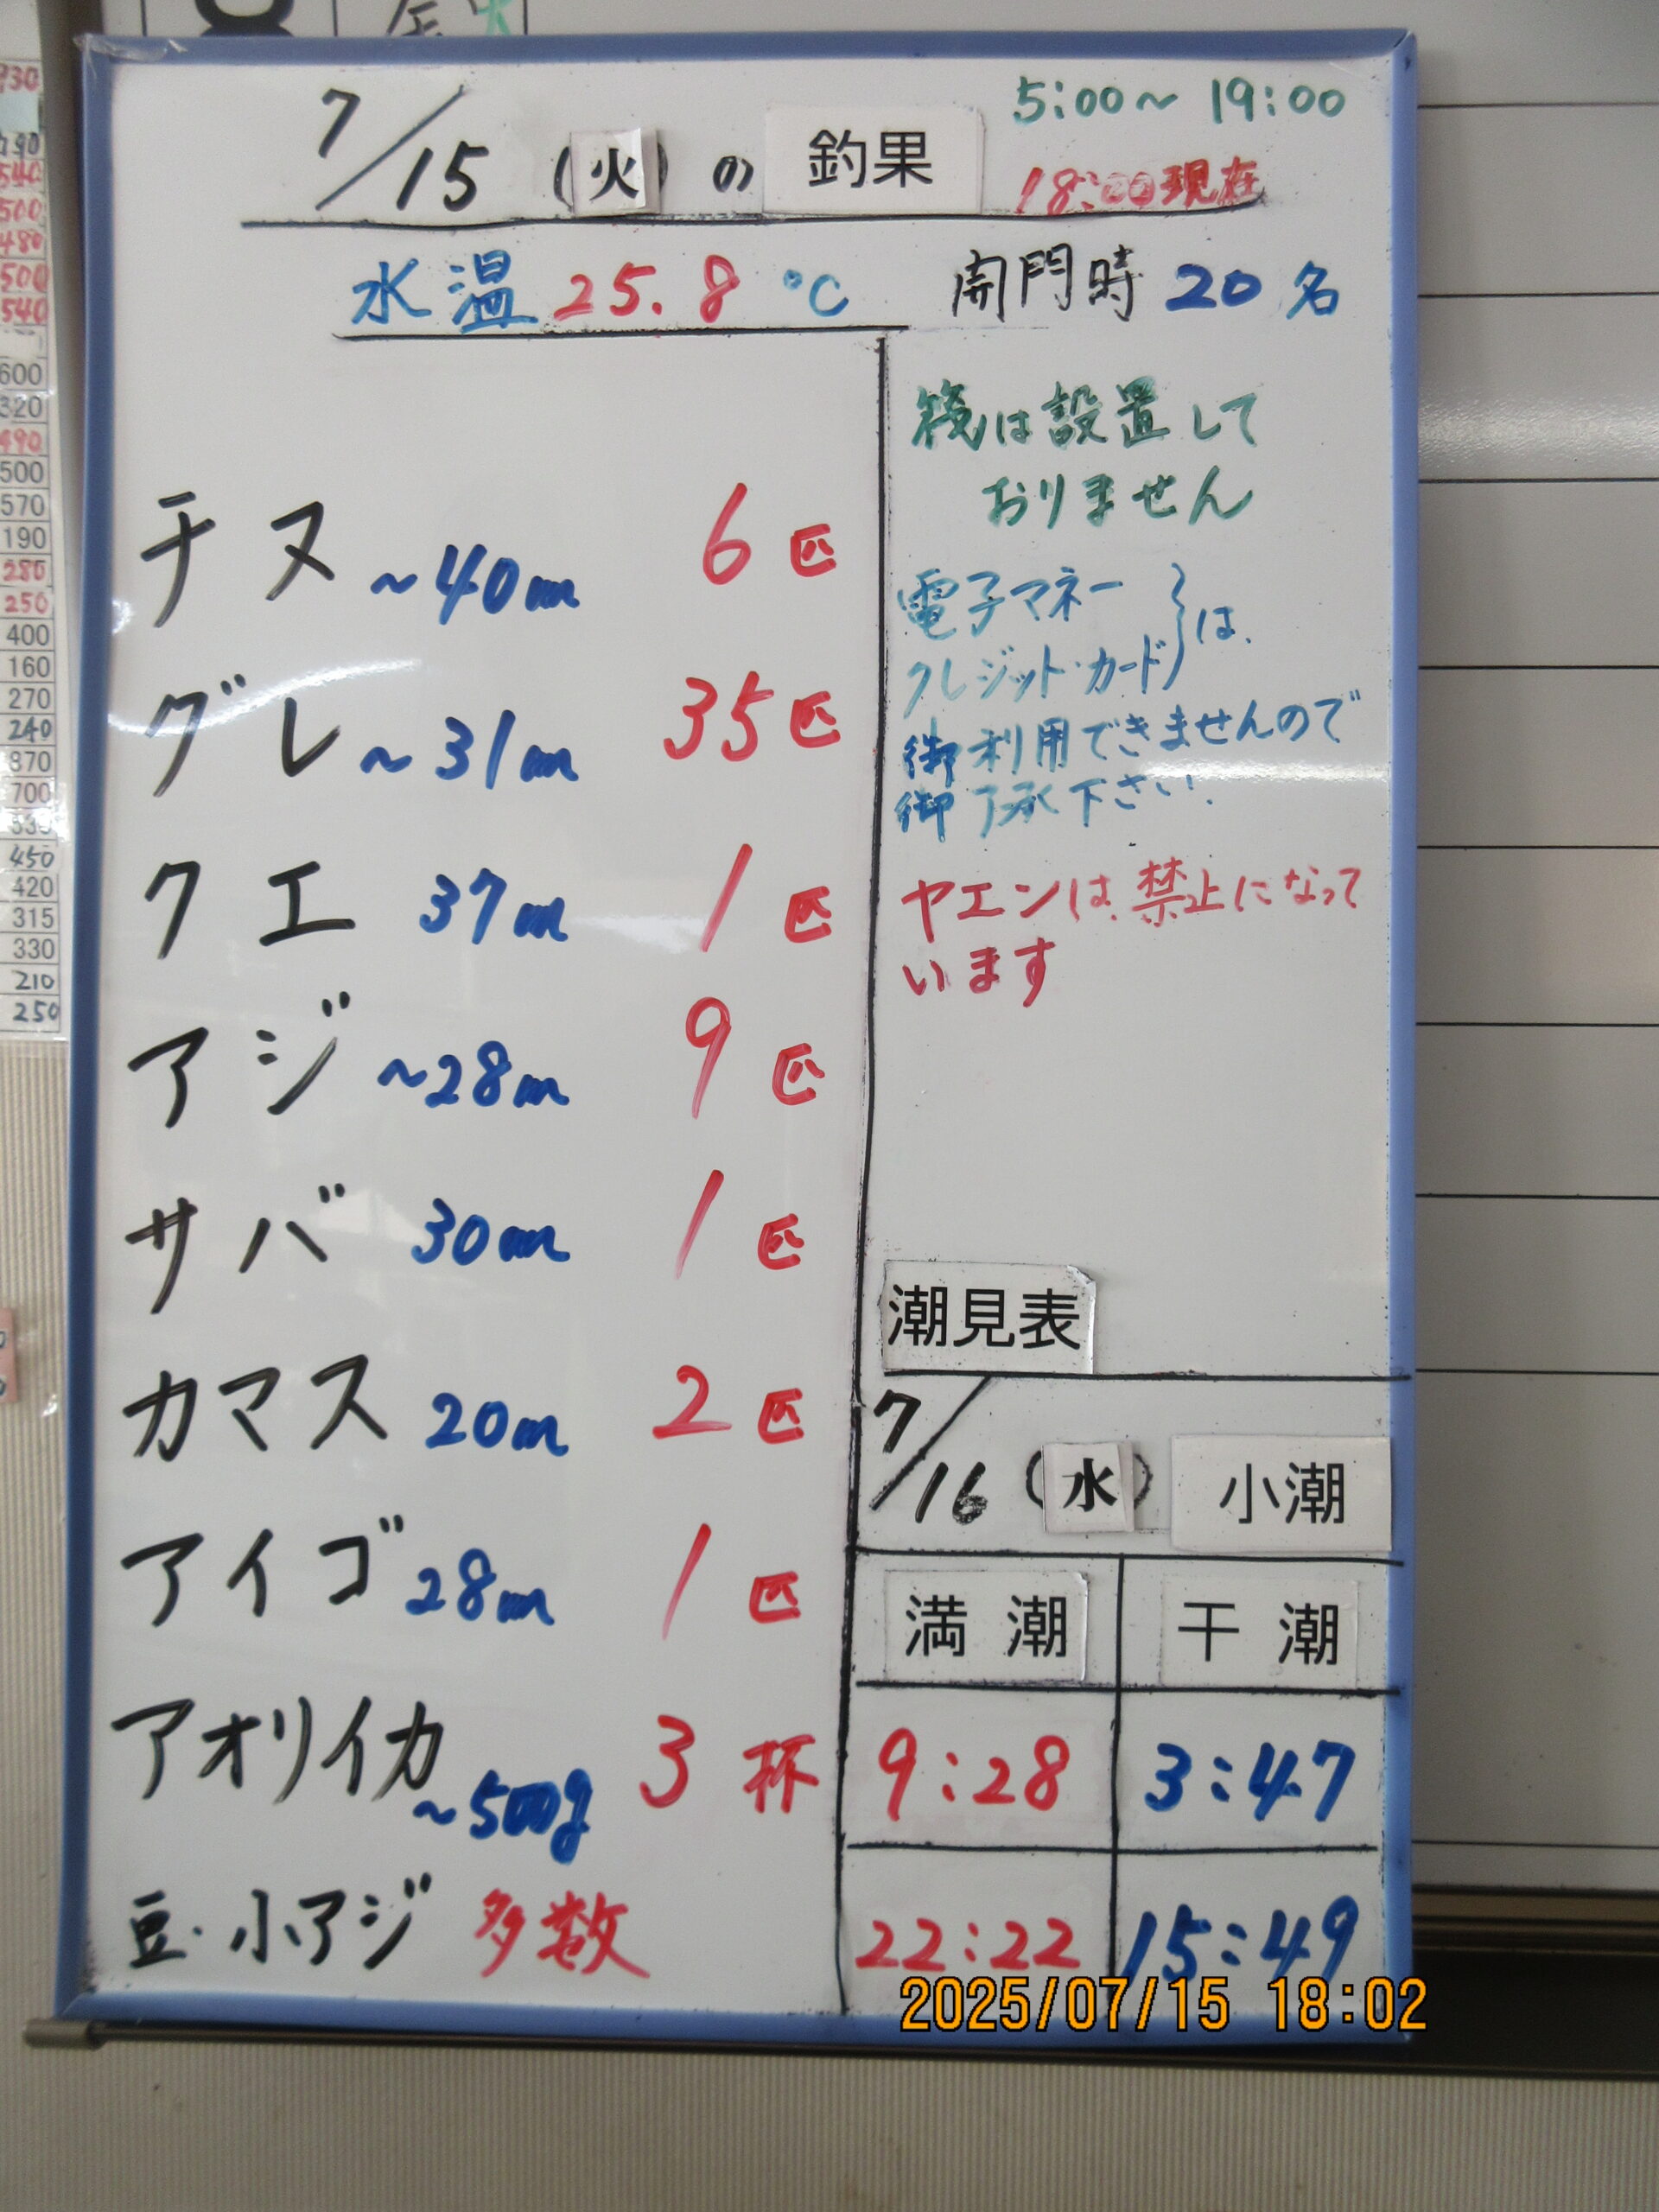 7/15(火)の釣果
5:00~19:00
18:00現在
水温25.8℃
開門時20名
チヌ ~40cm 6匹
グレ ~31cm 35匹
クエ 37cm 1匹
アジ ~28cm 9匹
サバ 30cm 1匹
カマス 20cm 2匹
アイゴ 28cm 1匹
アオリイカ ~500g 3杯
豆・小アジ 多数
筏は設置して
おりません
電子マネー
クレジット・カード}は、
御利用できませんので
御了承下さい.
ヤエンは、禁止になって
います
潮見表
7/16(水) 小潮
満潮 干潮
9:28 3:47
22:22 15:49
2025/07/15 18:02
600
320
490
500
570
190
280
250
400
160
270
240
870
700
450
420
315
330
210
250